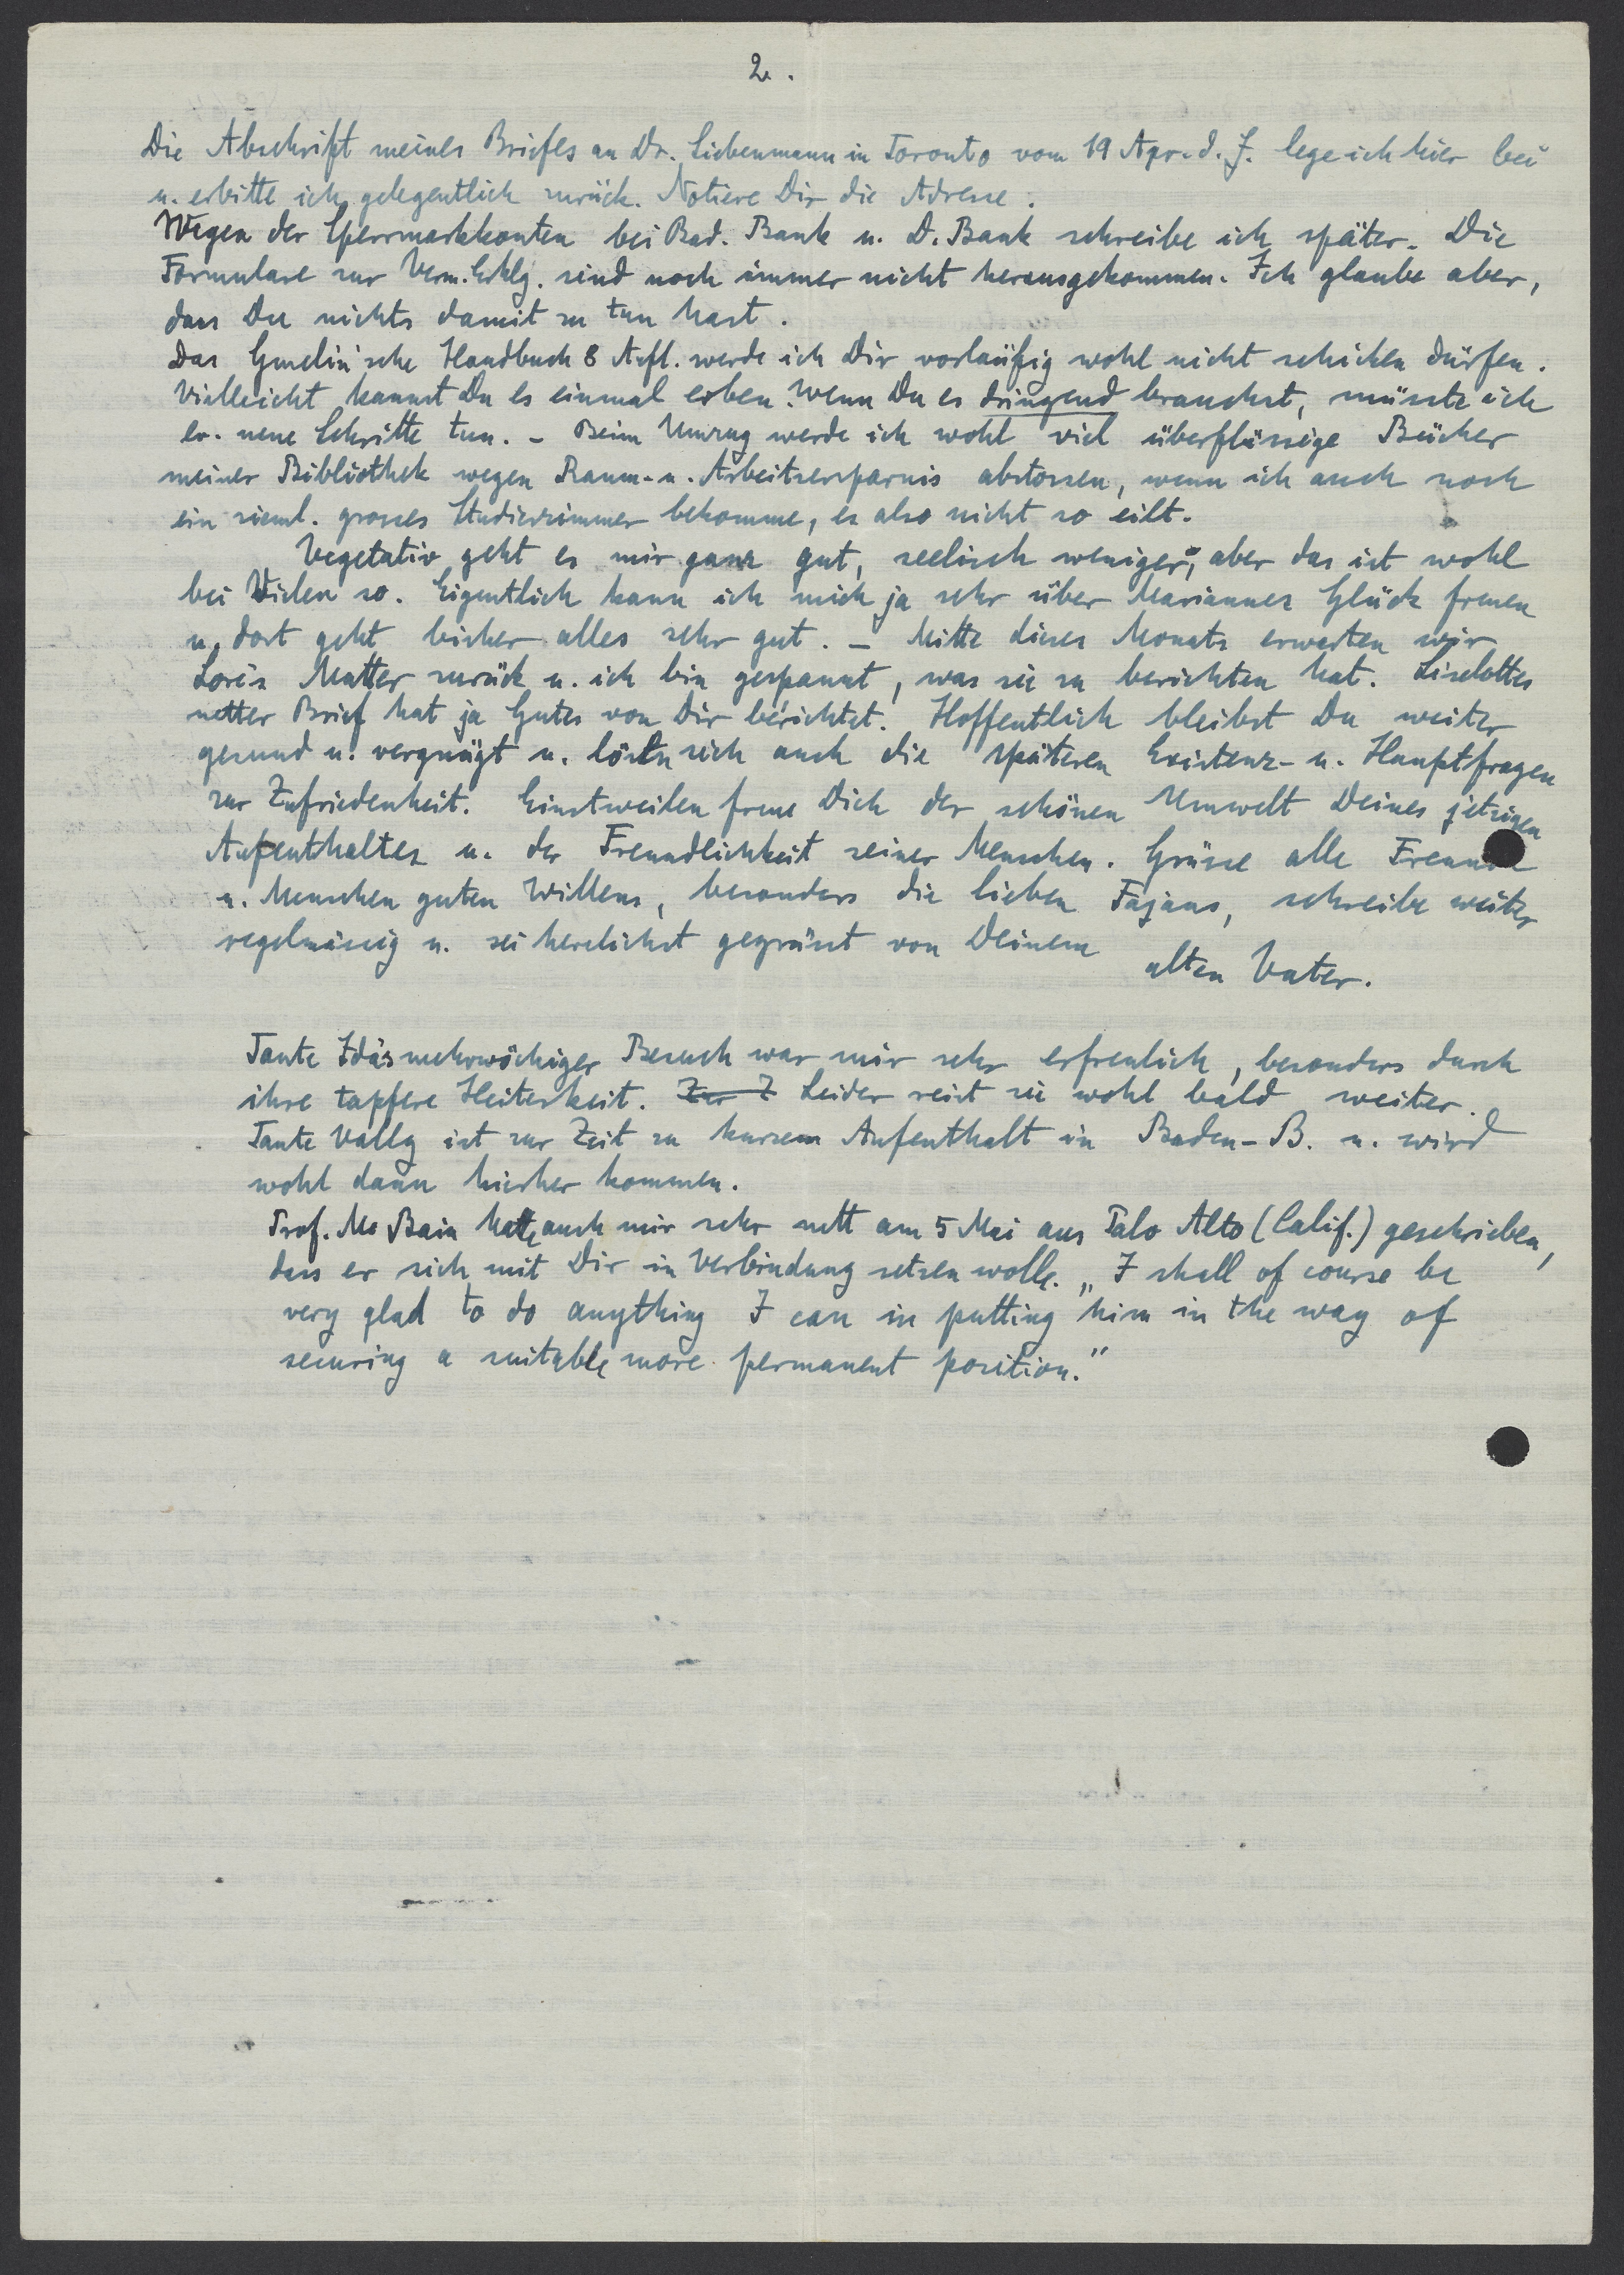 2.
Die Abschrift meines Briefes an Dr. Liebenmann in Toronto vom 19 Apr. d. J. lege ich hier bei
u. erbitte ich gelegentlich zurück. Notiere Dir die Adresse.
Wegen der Sperrmarkkonten bei Bad. Bank u. D. Bank schreibe ich später. Die
Formulare zur Verm. Erklg. sind noch immer nicht herausgekommen. Ich glaube aber,
dass Du nichts damit zu tun hast.
Das Gmelin'sche Handbuch 8 Aufl. werde ich Dir vorläufig wohl nicht schicken dürfen.
Vielleicht kannst Du es einmal erben. Wenn Du es dringend brauchst, müsste ich
ev. neue Schritte tun. – Beim Umzug werde ich wohl viel überflüssige Bücher
meiner Bibliothek wegen Raum- u. Arbeitsersparnis abstossen, wenn ich auch noch
ein zieml. grosses Studierzimmer bekomme, es also nicht so eilt.
Vegetativ geht es mir ganz gut, seelisch weniger, aber das ist wohl
bei Vielen so. Eigentlich kann ich mich ja sehr über Mariannes Glück freuen
u. dort geht bisher alles sehr gut. – Mitte dieses Monats erwarten wir
Lore's Mutter zurück u. ich bin gespannt, was sie zu berichten hat. Liselottes
netter Brief hat ja Gutes von Dir berichtet. Hoffentlich bleibst Du weiter
gesund u. vergnügt u. lösen sich auch die späteren Existenz- u. Hauptfragen
zur Zufriedenheit. Einstweilen freue Dich der schönen Umwelt Deines jetzigen
Aufenthaltes u. der Freundlichkeit seiner Menschen. Grüsse alle Freunde
u. Menschen guten Willens, besonders die lieben Fajans, schreibe weiter
regelmässig u. sei herzlichst gegrüsst von Deinem
alten Vater.
Tante Ida's mehrwöchiger Besuch war mir sehr erfreulich, besonders durch
ihre tapfere Heiterkeit. Zur Z Leider reist sie wohl bald weiter.
Tante Vally ist zur Zeit zu kurzem Aufenthalt in Baden-B. u. wird
wohl dann hierher kommen.
Prof. Mc Bain hatte auch mir sehr nett am 5 Mai aus Palo Alto (Calif.) geschrieben,
dass er sich mit Dir in Verbindung setzen wolle. „I shall of course be
very glad to do anything I can in putting him in the way of
securing a suitable more permanent position."